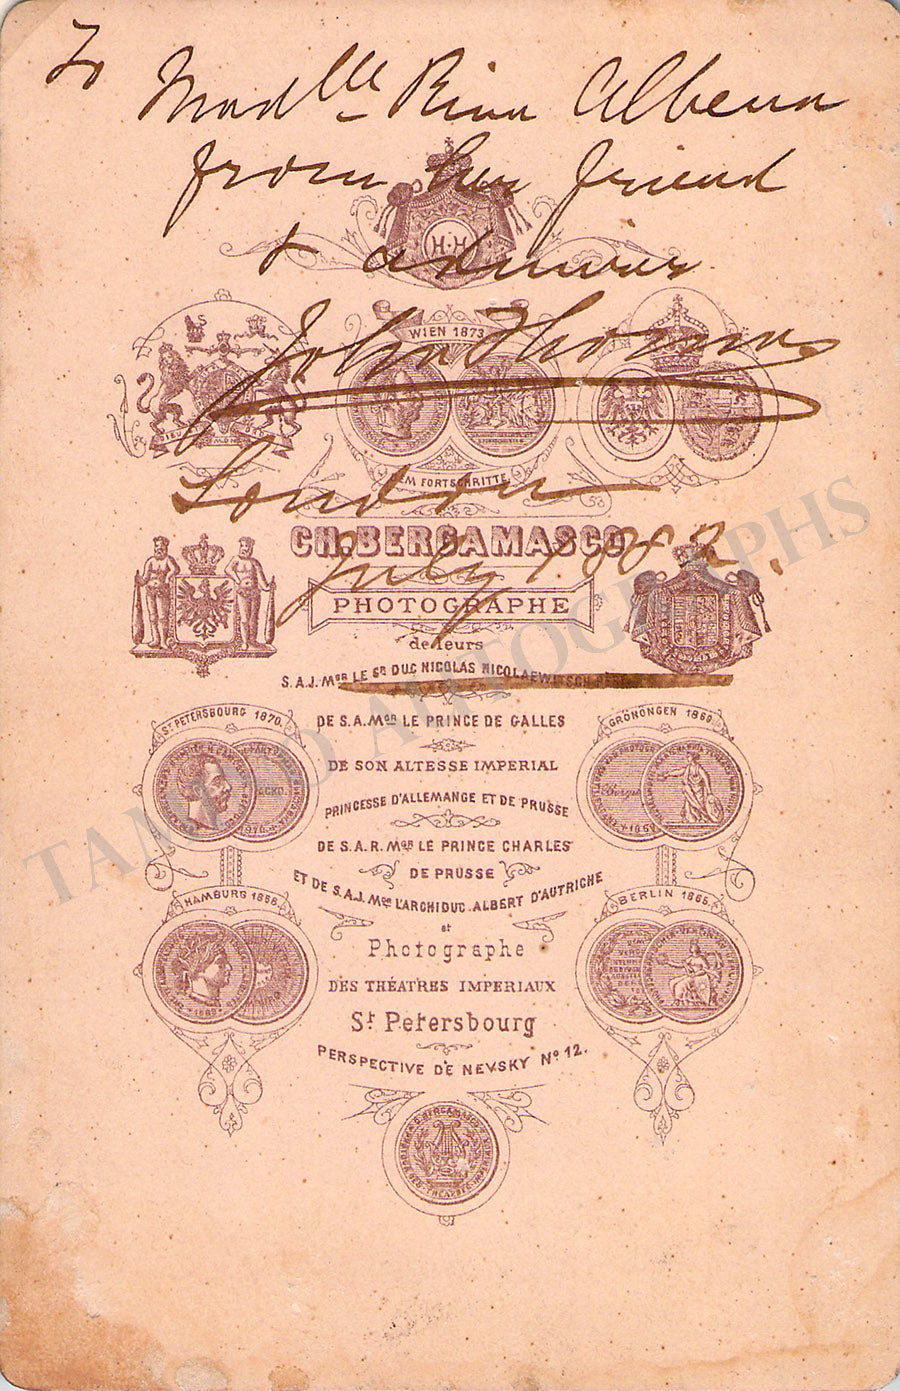 To
Madlle Rina Albena
from her friend
& admirer
John Thomas
London
July 1882.
H.H
WIEN 1873
DEM FORTSCHRITTE
CH. BERGAMASCO
PHOTOGRAPHE
de leurs
S.A.J. MGR LE GR DUC NICOLAS NICOLAEWITSCH PÈRE
DE S.A. MGR LE PRINCE DE GALLES
DE SON ALTESSE IMPERIAL
PRINCESSE D'ALLEMANGE ET DE PRUSSE
DE S.A.R. MGR LE PRINCE CHARLES
DE PRUSSE
ET DE S.A.J. MGR L'ARCHIDUC ALBERT D'AUTRICHE
et
Photographe
DES THÉATRES IMPERIAUX
St Petersbourg
PERSPECTIVE DE NEVSKY No 12.
ST PETERSBOURG 1870.
GRÖNONGEN 1869.
HAMBURG 1868.
BERLIN 1865.
TAMINO AUTOGRAPHS